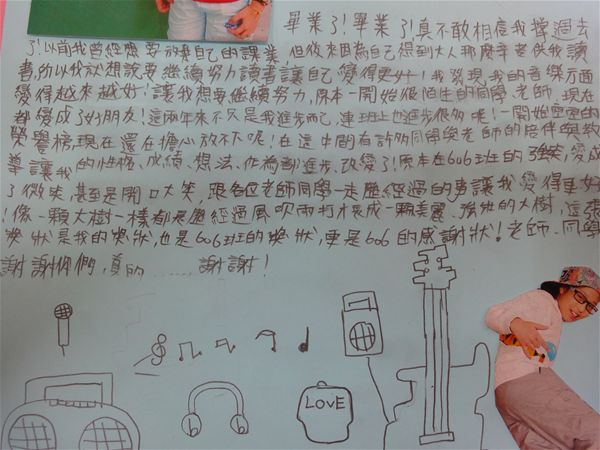 畢業了!畢業了!真不敢相信我撐過去
了!以前我曾經想要放棄自己的課業,但後來因為自己得到大人那麼辛苦供我讀
書,所以我就想說要繼續努力讀書讓自己變得更好!我發現我的音樂方面
變得越來越好!讓我想要繼續努力,原本一開始很陌生的同學、老師,現在
都變成了好朋友!這兩年來不只是我進步而已,連班上也進步很多呢!一開始空空的
榮譽榜,現在還在擔心放不下呢!在這中間有許多同學與老師的陪伴與教
導讓我的性格、成績、想法、作為都進步、改變了!原本在606班的強笑,變成
了微笑,甚至是開口大笑,跟各位老師同學一起歷經過的事讓我變得更好
!像一顆大樹一樣都是歷經過風吹雨打才長成一顆美麗、強壯的大樹,這張
獎狀是我的獎狀,也是606班的獎狀,更是606的感謝狀!老師、同學
謝謝你們,真的......謝謝!
LOVE
b b